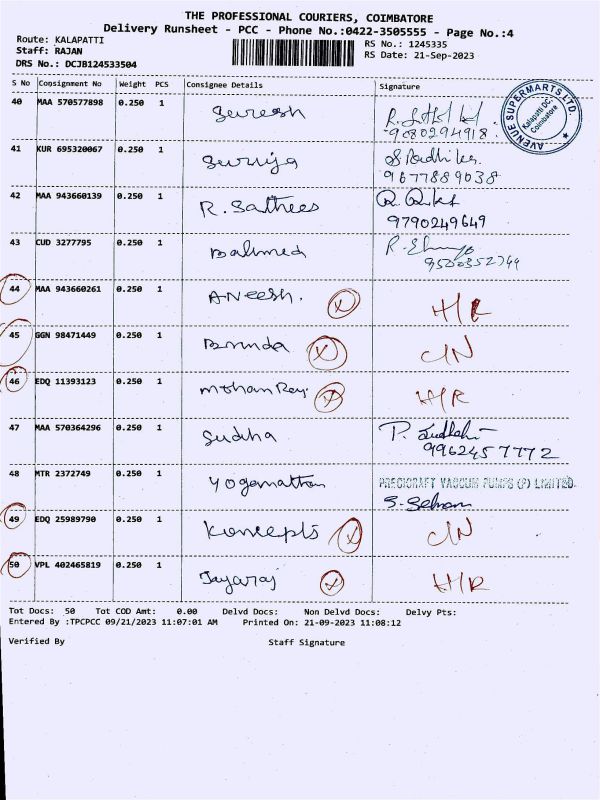 THE PROFESSIONAL COURIERS, COIMBATORE
Delivery Runsheet - PCC - Phone No.:0422-3505555 - Page No.:4
Route: KALAPATTI
RS No.: 1245335
Staff: RAJAN
RS Date: 21-Sep-2023
DRS No.: DCJB124533504
S No Consignment No Weight PCS Consignee Details Signature
40 MAA 570577898 0.250 1 Suresh
9080294918
AVENUE SUPERMARTS LTD.
Kalapatti DC,
Coimbatore
41 KUR 695320067 0.250 1
9677889038
42 MAA 943660139 0.250 1 R. Sathees
9790249649
43 CUD 3277795 0.250 1
9500352749
44 MAA 943660261 0.250 1 ANeesh. X H/R
45 GGN 98471449 0.250 1 Brinda X C/N
46 EDQ 11393123 0.250 1 X H/R
47 MAA 570364296 0.250 1 Sudha P.
9962457772
48 MTR 2372749 0.250 1 PRECICRAFT VACUUM PUMPS (P) LIMITED.
49 EDQ 25989790 0.250 1 Koncepts X C/N
50 VPL 402465819 0.250 1 Jayaraj X H/R
Tot Docs: 50 Tot COD Amt: 0.00 Delvd Docs: Non Delvd Docs: Delvy Pts:
Entered By :TPCPCC 09/21/2023 11:07:01 AM Printed On: 21-09-2023 11:08:12
Verified By Staff Signature